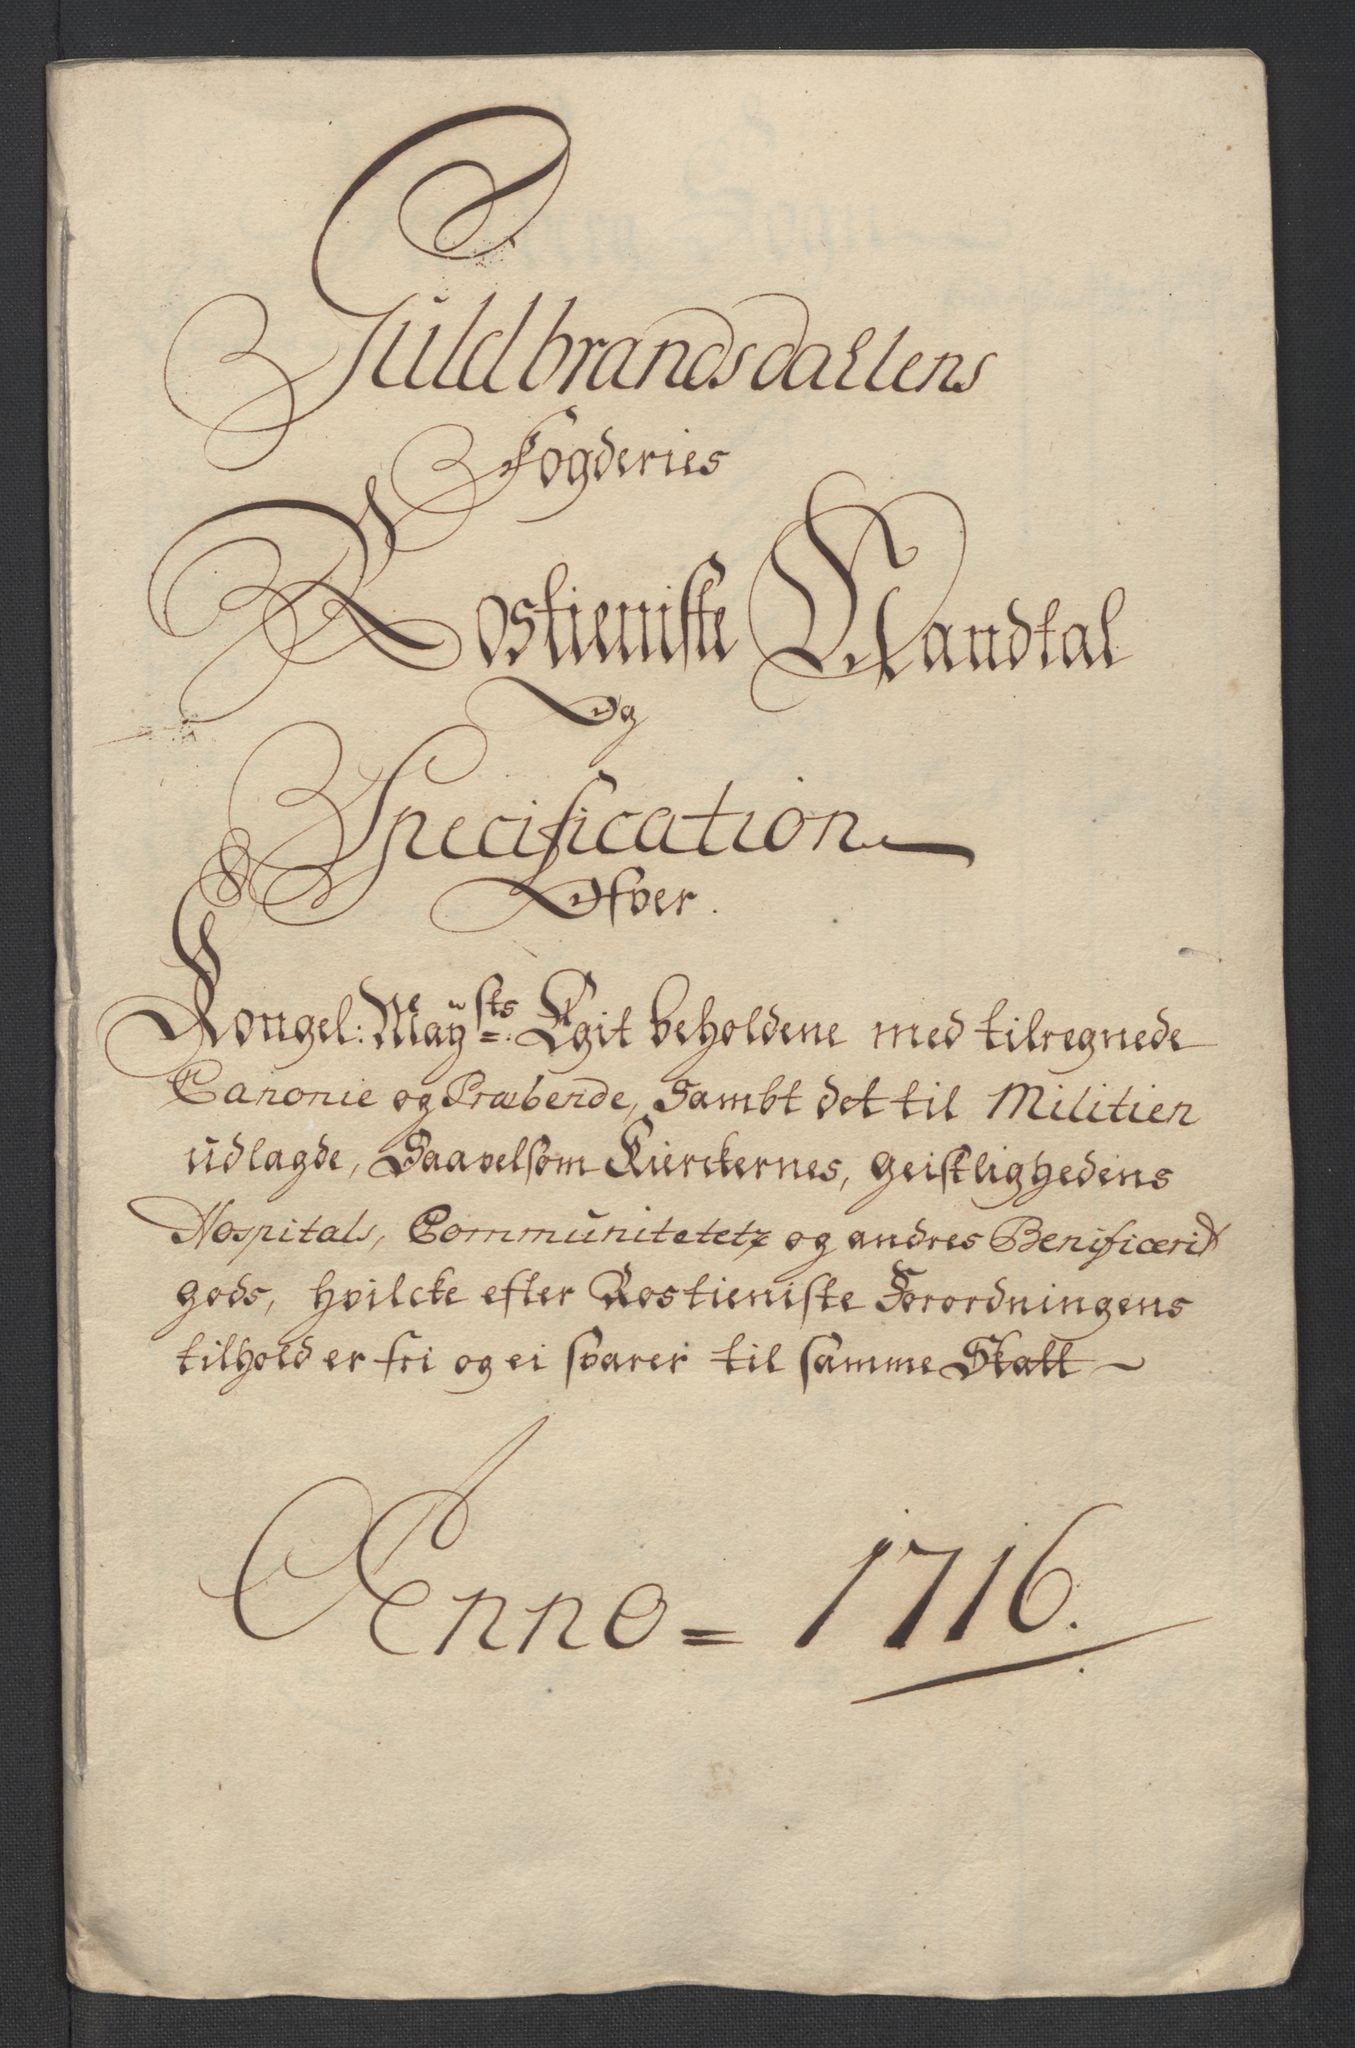 Guldbrandsdahlens
Fogderies
Rostieniste Mandtal
Og
Specification
Ofver.
Kongel: Mayᵗˢ: Egit beholdene med tilregnede
Canonie og Præbende, Sambt det til Militien
udlagde, Saavelsom Kierckernes, geistlighedens
Hospitals, Communitetetz og andres Benificeri
gods, hvilcke efter Rostieniste Forordningens
tilhold er fri og ei svarer til samme Skatt ~
Anno = 1716.